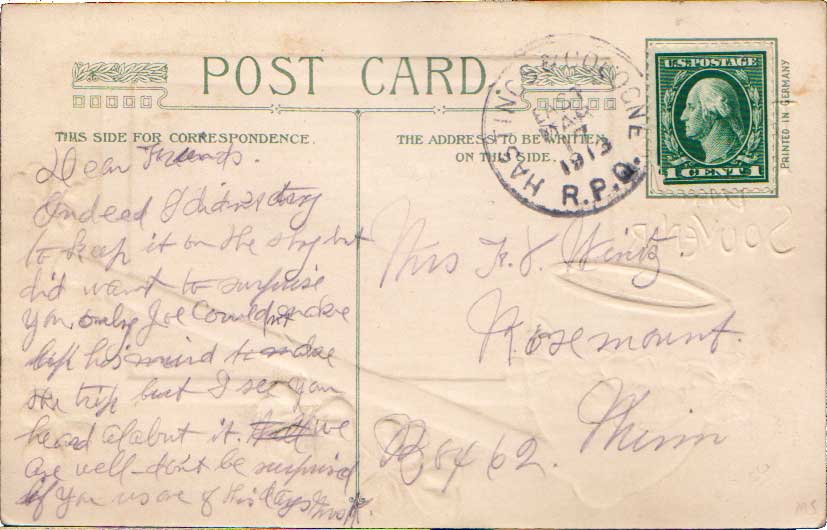 POST CARD
THIS SIDE FOR CORRESPONDENCE.
THE ADDRESS TO BE WRITTEN
ON THIS SIDE.
HASTINGS & COLOGNE
EAST
MAR
1913
R.P.O.
U.S. POSTAGE
1 CENT 1
PRINTED IN GERMANY
SOUVENIR
Dear Friends.
Indeed I didn't try
to keep it on the sly but
did want to surprise
you only Joe couldn't make
up his mind to make
the trip but I see you
heard alabut it. we
are well - don't be surprised
if you us one of this days
Mrs F. J. Wirtz.
Rosemount.
B 8462. Minn
MS